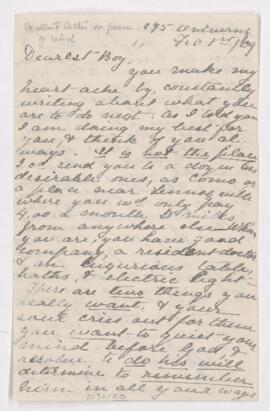 Excellent letter on peace
of mind
195 University
Feb 1st /09
Dearest Boy,
you make my
heart ache by constantly
writing about what you
are to do next. as I told you
I am doing my best for
you, & think of you al-
ways. It is not the place
I cd send you to a dozen in
desirable ones, as Como or
a place near
where you wd only pay
4.00 a month 5 miles
from anywhere else. When
you are, you have good
company, a resident doctor
& a luxurious table,
baths, & electric light
There are two things you
really want, & your
soul cries out for them
you want to quiet your
mind before God, &
resolve to do his will
determine to remember
him in all your ways